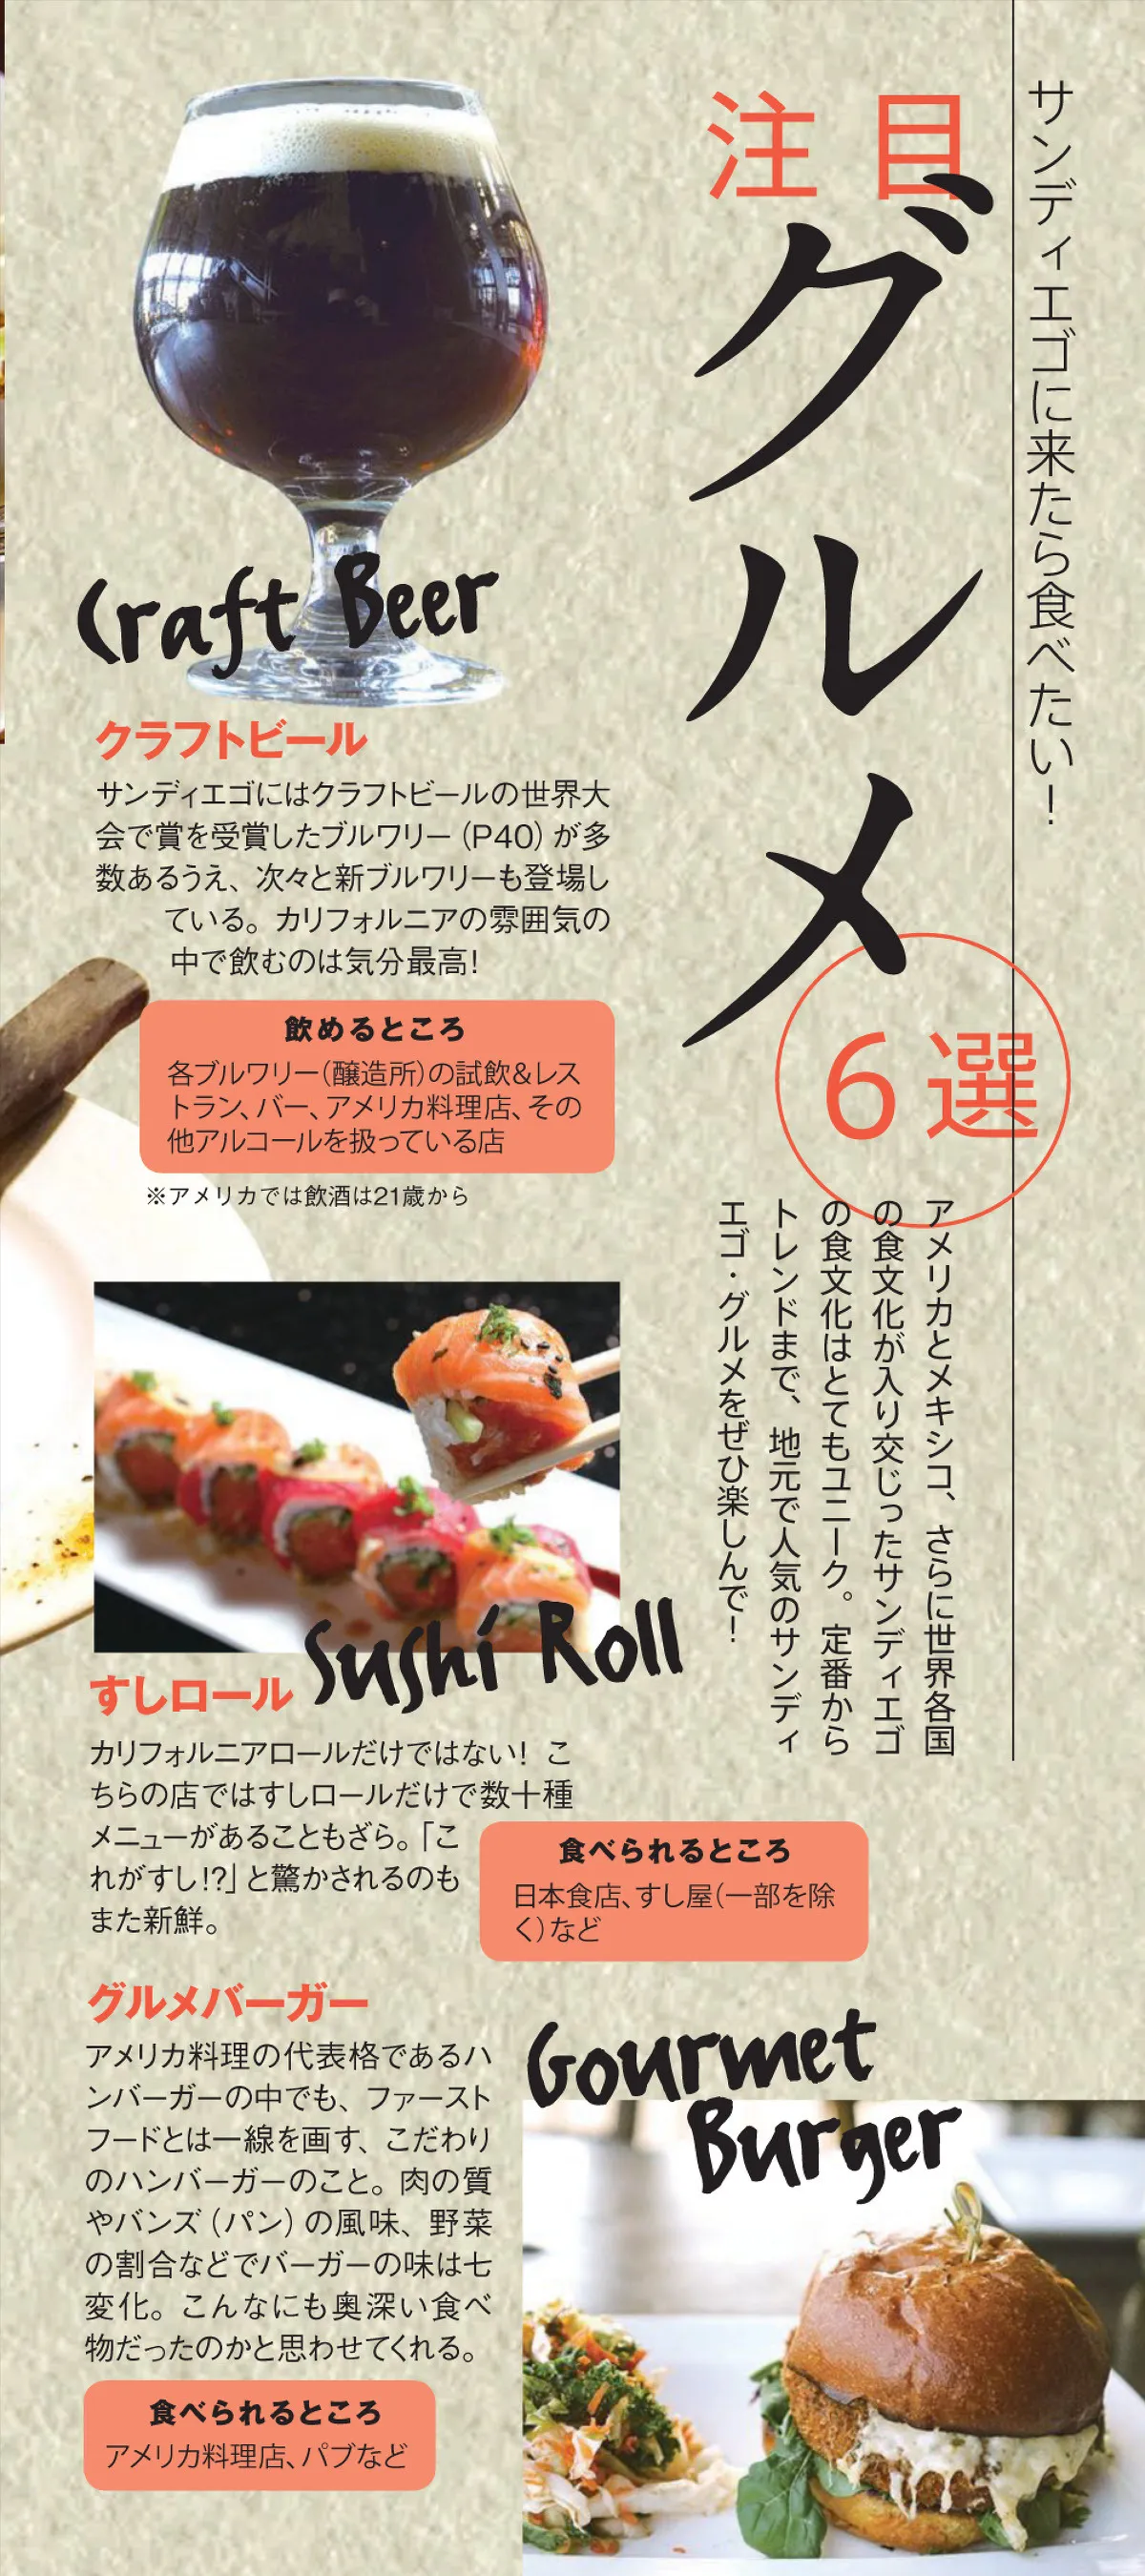 サンディエゴに来たら食べたい!
注目
グルメ
6選
アメリカとメキシコ、さらに世界各国
の食文化が入り交じったサンディエゴ
の食文化はとてもユニーク。定番から
トレンドまで、地元で人気のサンディ
エゴ・グルメをぜひ楽しんで!
Craft Beer
クラフトビール
サンディエゴにはクラフトビールの世界大
会で賞を受賞したブルワリー(P40)が多
数あるうえ、次々と新ブルワリーも登場し
ている。カリフォルニアの雰囲気の
中で飲むのは気分最高!
飲めるところ
各ブルワリー(醸造所)の試飲&レス
トラン、バー、アメリカ料理店、その
他アルコールを扱っている店
※アメリカでは飲酒は21歳から
Sushi Roll
すしロール
カリフォルニアロールだけではない! こ
ちらの店ではすしロールだけで数十種
メニューがあることもざら。「こ
れがすし!?」と驚かされるのも
また新鮮。
食べられるところ
日本食店、すし屋(一部を除
く)など
Gourmet
Burger
グルメバーガー
アメリカ料理の代表格であるハ
ンバーガーの中でも、ファースト
フードとは一線を画す、こだわり
のハンバーガーのこと。肉の質
やバンズ(パン)の風味、野菜
の割合などでバーガーの味は七
変化。こんなにも奥深い食べ
物だったのかと思わせてくれる。
食べられるところ
アメリカ料理店、パブなど